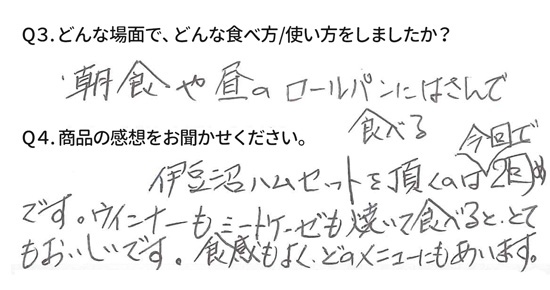 Q3.どんな場面で、どんな食べ方/使い方をしましたか?
・朝食や昼のロールパンにはさんで
食べる
Q4.商品の感想をお聞かせください。
今回で
伊豆沼ハムセットを頂くのは2回め
です。ウインナーもミートケーゼも焼いて食べると、とて
もおいしいです。食感もよく、どのメニューにもあいます。